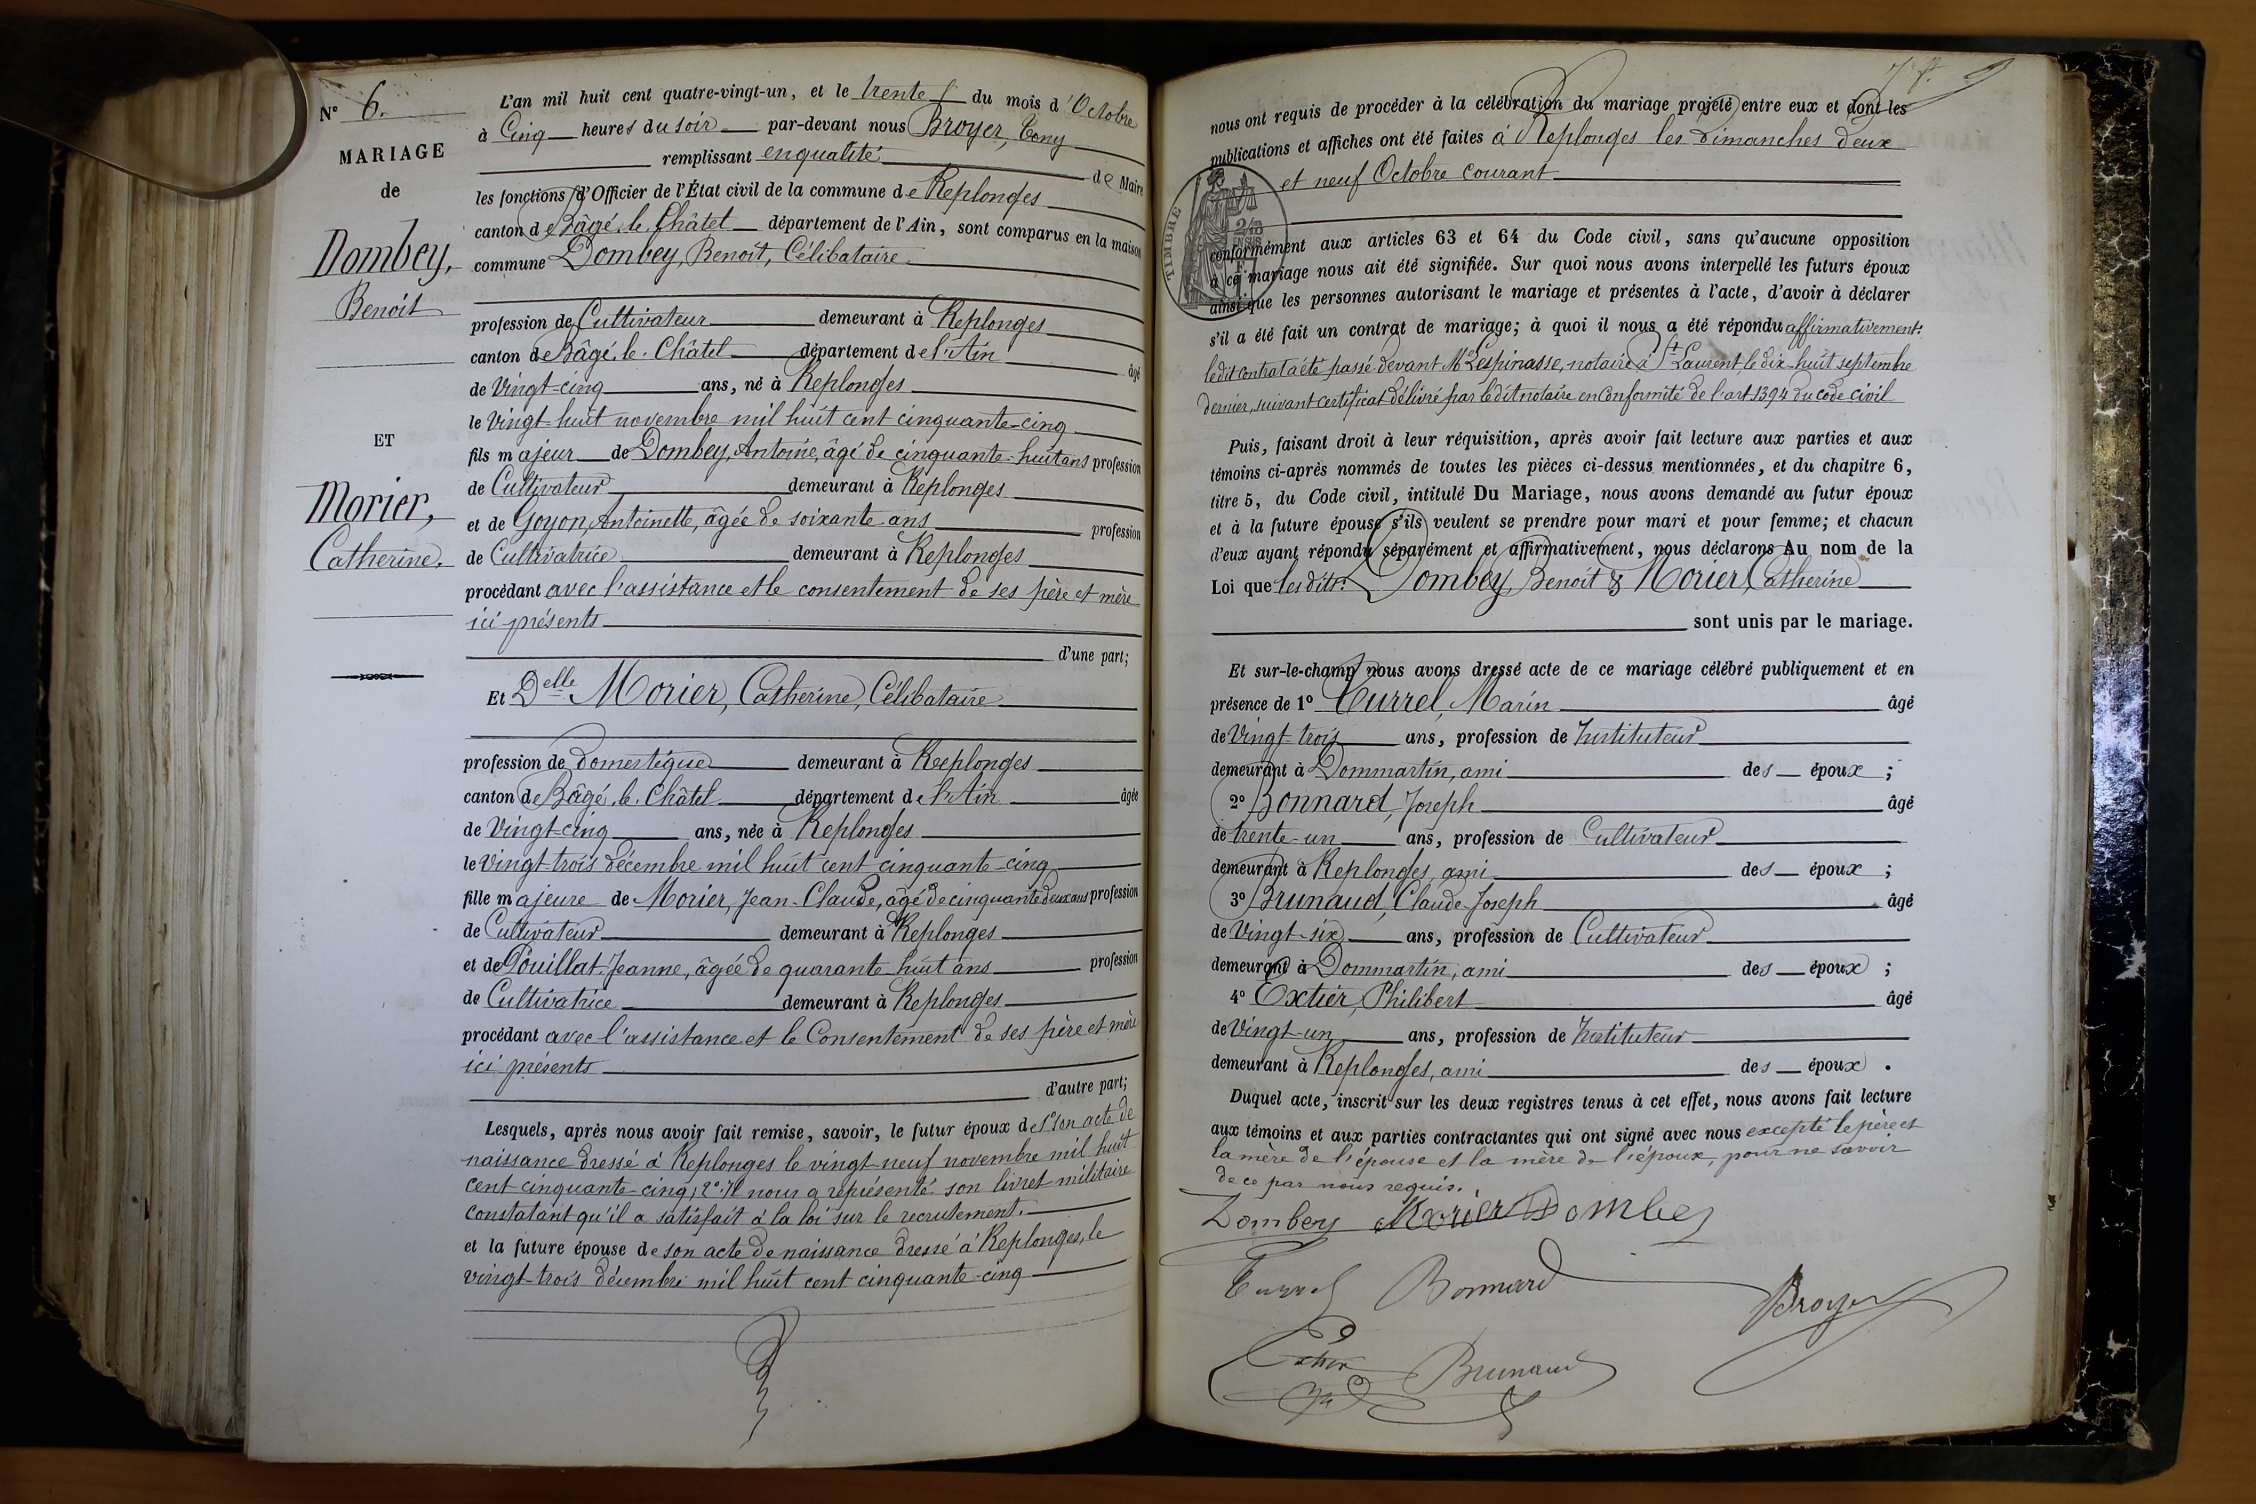 N° 6.
MARIAGE
de
Dombey,
Benoit
ET
Morier,
Catherine.
L'an mil huit cent quatre-vingt-un, et le trente du mois d'Octobre
à Cinq heures du soir par-devant nous Broyer, Tony
remplissant en qualité de Maire
les fonctions d'Officier de l'État civil de la commune de Replonges
canton de Bâgé-le-Châtel département de l'Ain, sont comparus en la maison
commune Dombey, Benoit, Célibataire
profession de Cultivateur demeurant à Replonges
canton de Bâgé-le-Châtel département de l'Ain âgé
de Vingt-cinq ans, né à Replonges
le Vingt-huit novembre mil huit cent cinquante-cinq
fils majeur de Dombey, Antoine, âgé de cinquante-huit ans profession
de Cultivateur demeurant à Replonges
et de Goyon, Antoinette, âgée de soixante ans profession
de Cultivatrice demeurant à Replonges
procédant avec l'assistance et le consentement de ses père et mère
ici présents
d'une part;
Et Delle Morier, Catherine, Célibataire
profession de Domestique demeurant à Replonges
canton de Bâgé-le-Châtel département de l'Ain âgée
de Vingt-cinq ans, née à Replonges
le Vingt-trois décembre mil huit cent cinquante-cinq
fille majeure de Morier, Jean-Claude, âgé de cinquante deux ans profession
de Cultivateur demeurant à Replonges
et de Pouillat Jeanne, âgée de quarante-huit ans profession
de Cultivatrice demeurant à Replonges
procédant avec l'assistance et le Consentement de ses père et mère
ici présents
d'autre part;
Lesquels, après nous avoir fait remise, savoir, le futur époux de 1° son acte de
naissance dressé à Replonges le vingt-neuf novembre mil huit
cent cinquante-cinq; 2° Il nous a représenté son livret militaire
constatant qu'il a satisfait à la loi sur le recrutement.
et la future épouse de son acte de naissance dressé à Replonges, le
vingt-trois décembre mil huit cent cinquante-cinq
nous ont requis de procéder à la célébration du mariage projeté entre eux et dont les
publications et affiches ont été faites à Replonges les Dimanches deux
et neuf Octobre courant
TIMBRE
conformément aux articles 63 et 64 du Code civil, sans qu'aucune opposition
à ce mariage nous ait été signifiée. Sur quoi nous avons interpellé les futurs époux
ainsi que les personnes autorisant le mariage et présentes à l'acte, d'avoir à déclarer
s'il a été fait un contrat de mariage; à quoi il nous a été répondu affirmativement:
ledit contrat a été passé devant Me Lespinasse, notaire à St Laurent le dix-huit septembre
dernier, suivant certificat délivré par ledit notaire en conformité de l'art 1394 du code civil
Puis, faisant droit à leur réquisition, après avoir fait lecture aux parties et aux
témoins ci-après nommés de toutes les pièces ci-dessus mentionnées, et du chapitre 6,
titre 5, du Code civil, intitulé Du Mariage, nous avons demandé au futur époux
et à la future épouse s'ils veulent se prendre pour mari et pour femme; et chacun
d'eux ayant répondu séparément et affirmativement, nous déclarons Au nom de la
Loi que les dits: Dombey, Benoit & Morier, Catherine
sont unis par le mariage.
Et sur-le-champ nous avons dressé acte de ce mariage célébré publiquement et en
présence de 1° Turrel, Marin âgé
de Vingt-trois ans, profession de Instituteur
demeurant à Dommartin, ami des époux ;
2° Bonnard, Joseph âgé
de trente-un ans, profession de Cultivateur
demeurant à Replonges, ami des époux ;
3° Brunaud, Claude-Joseph âgé
de Vingt-six ans, profession de Cultivateur
demeurant à Dommartin, ami des époux ;
4° Extier, Philibert âgé
de Vingt-un ans, profession de Instituteur
demeurant à Replonges, ami des époux .
Duquel acte, inscrit sur les deux registres tenus à cet effet, nous avons fait lecture
aux témoins et aux parties contractantes qui ont signé avec nous excepté le père et
la mère de l'épouse et la mère de l'époux, pour ne savoir
de ce par nous requis.
Dombey Morier Dombey
Turrel Bonnard Broyer
Extier Brunaud